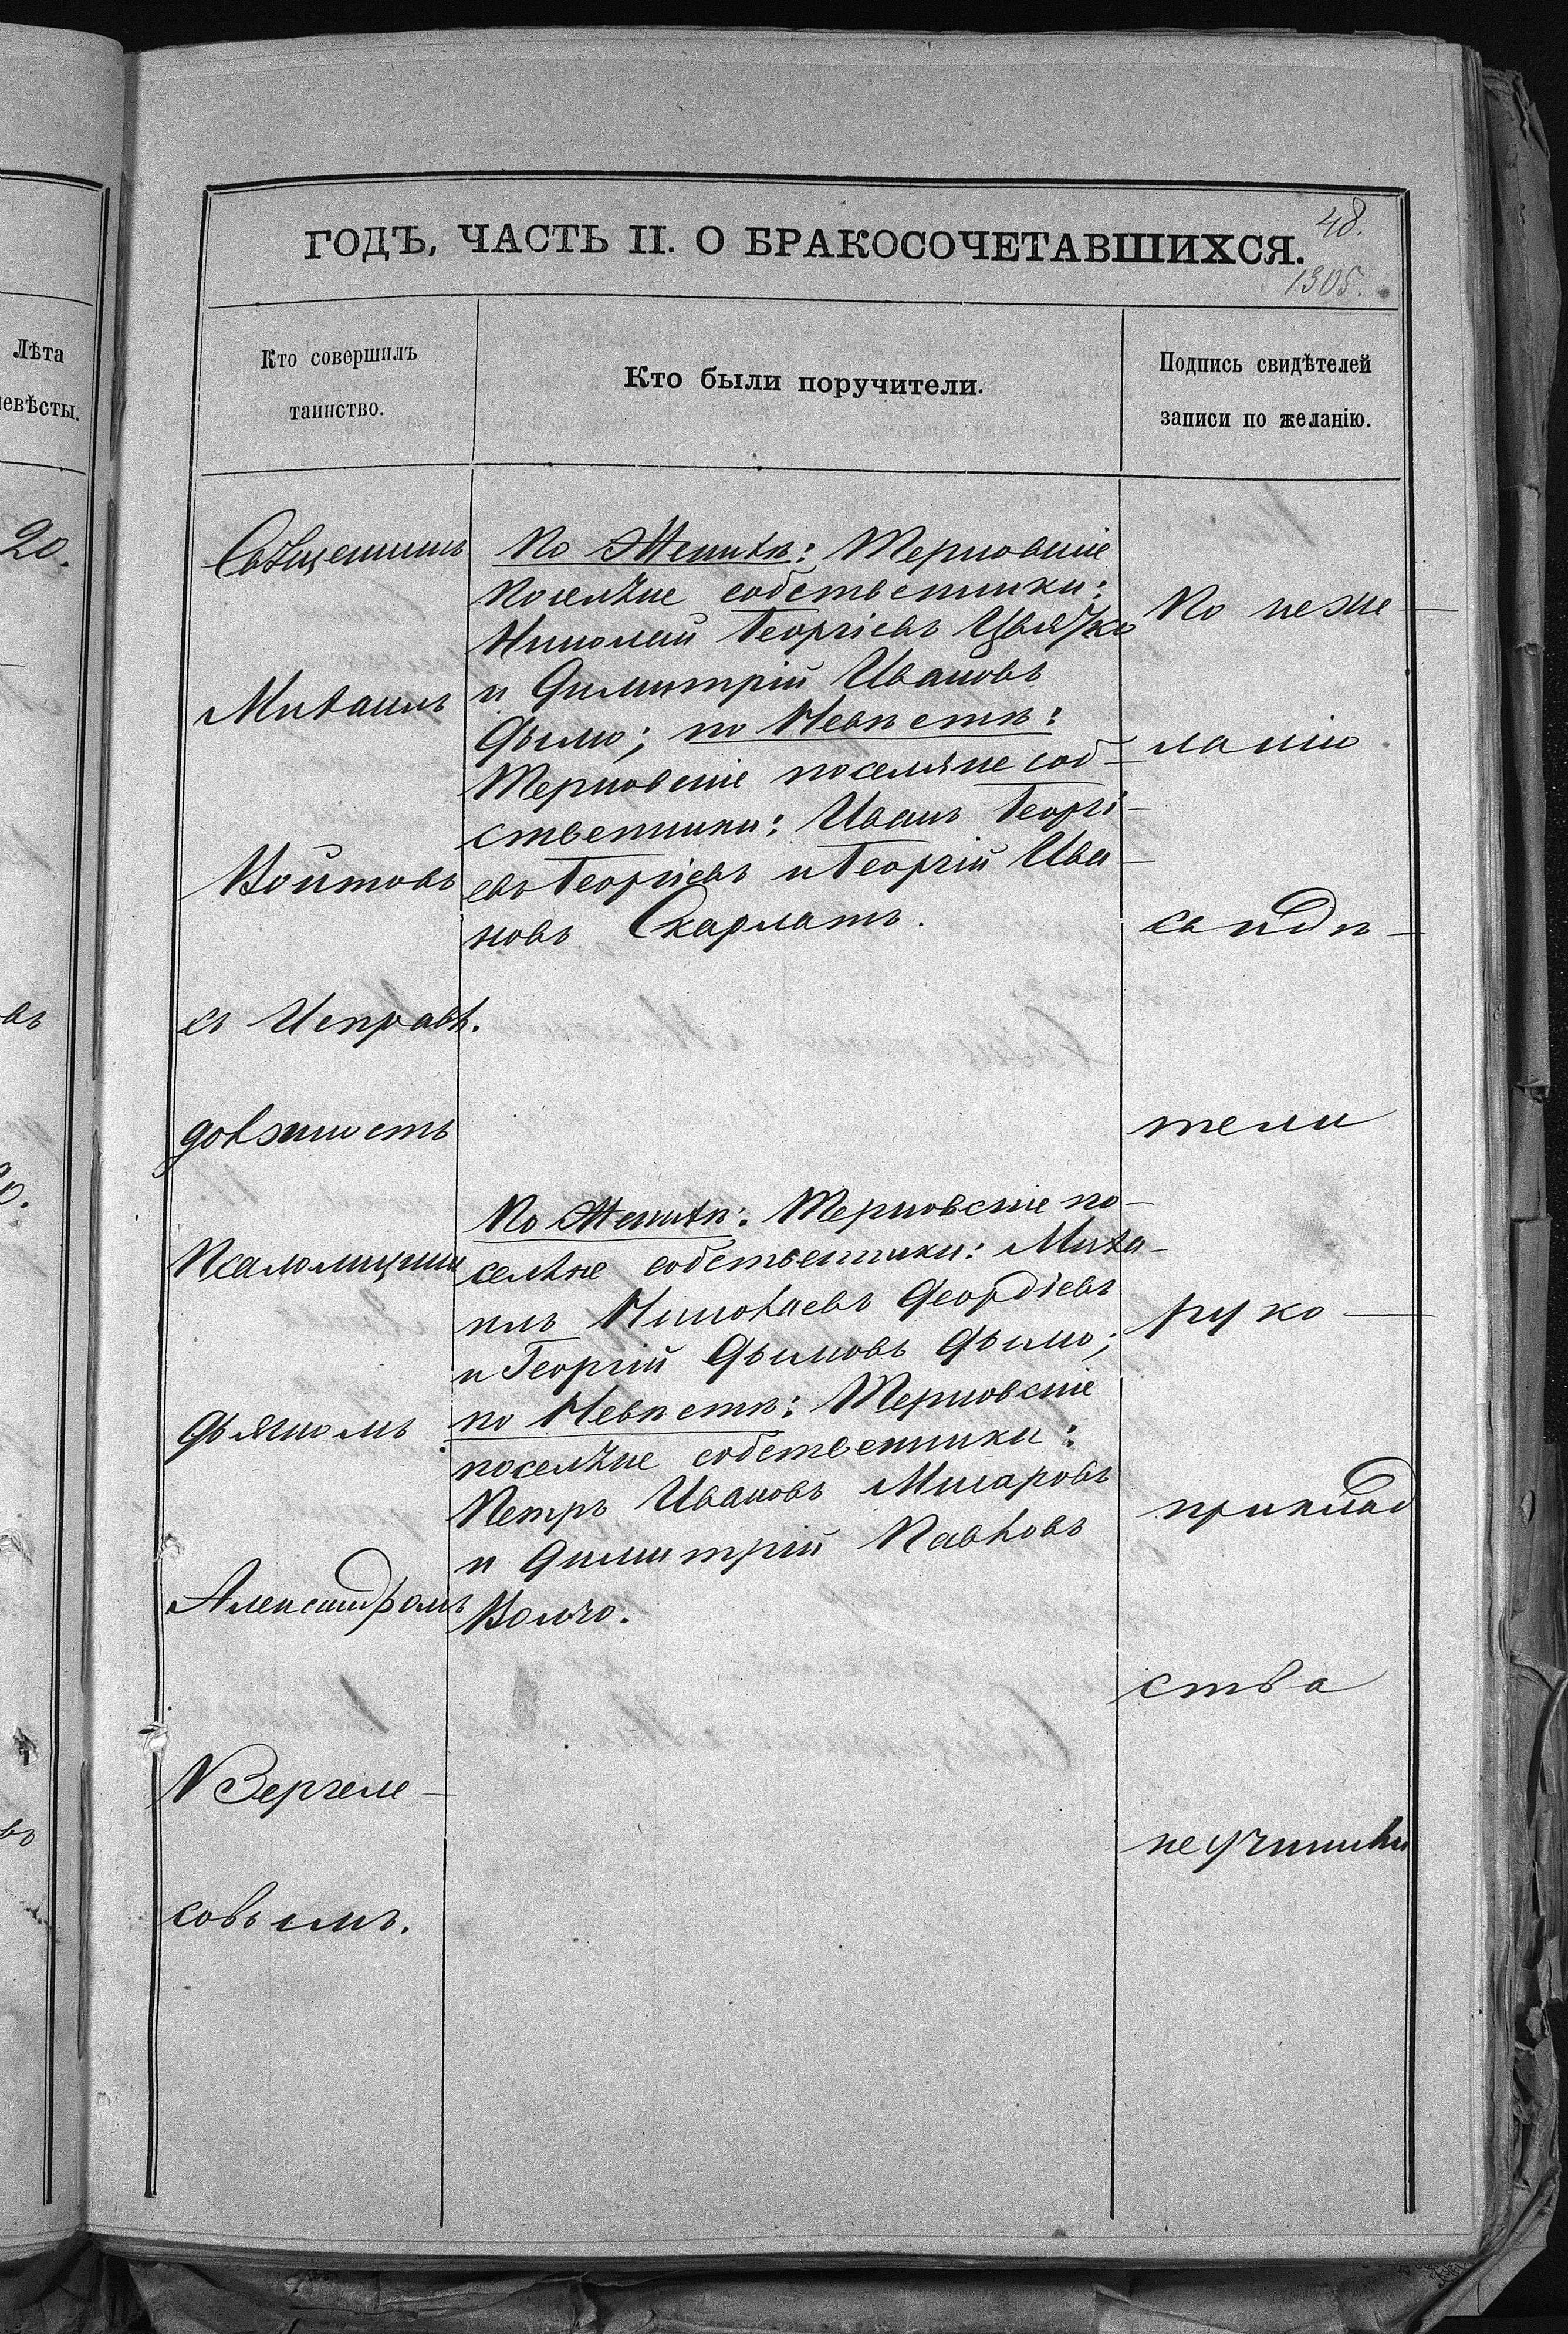 48.
ГОДЪ, ЧАСТЬ II. О БРАКОСОЧЕТАВШИХСЯ.
1305.
Лѣта
невѣсты.
Кто совершилъ
таинство.
Кто были поручители.
Подпись свидѣтелей
записи по желанію.
20.
Священникъ
Михаилъ
Войтовъ
съ Исправл.
должность
Псаломщика
Дьякомъ
Александромъ
Вергеле-
совымъ.
По Женихѣ: Терновскіе
поселяне собственники:
Николай Георгіевъ
и Димитрій Ивановъ
Дымо; по Невѣстѣ:
Терновскіе поселяне соб-
ственники: Иванъ Георгі-
евъ Георгіевъ и Георгій Ива-
новъ Скарлатъ.
По Женихѣ: Терновскіе по-
селяне собственники: Миха-
илъ Николаевъ Деордіевъ
и Георгій Дымовъ Дымо;
по Невѣстѣ: Терновскіе
поселяне собственники:
Петръ Ивановъ
и Димитрій Павловъ
Волчо.
По неже-
ланію
свидѣ-
тели
руко-
приклад
ства
не учинили